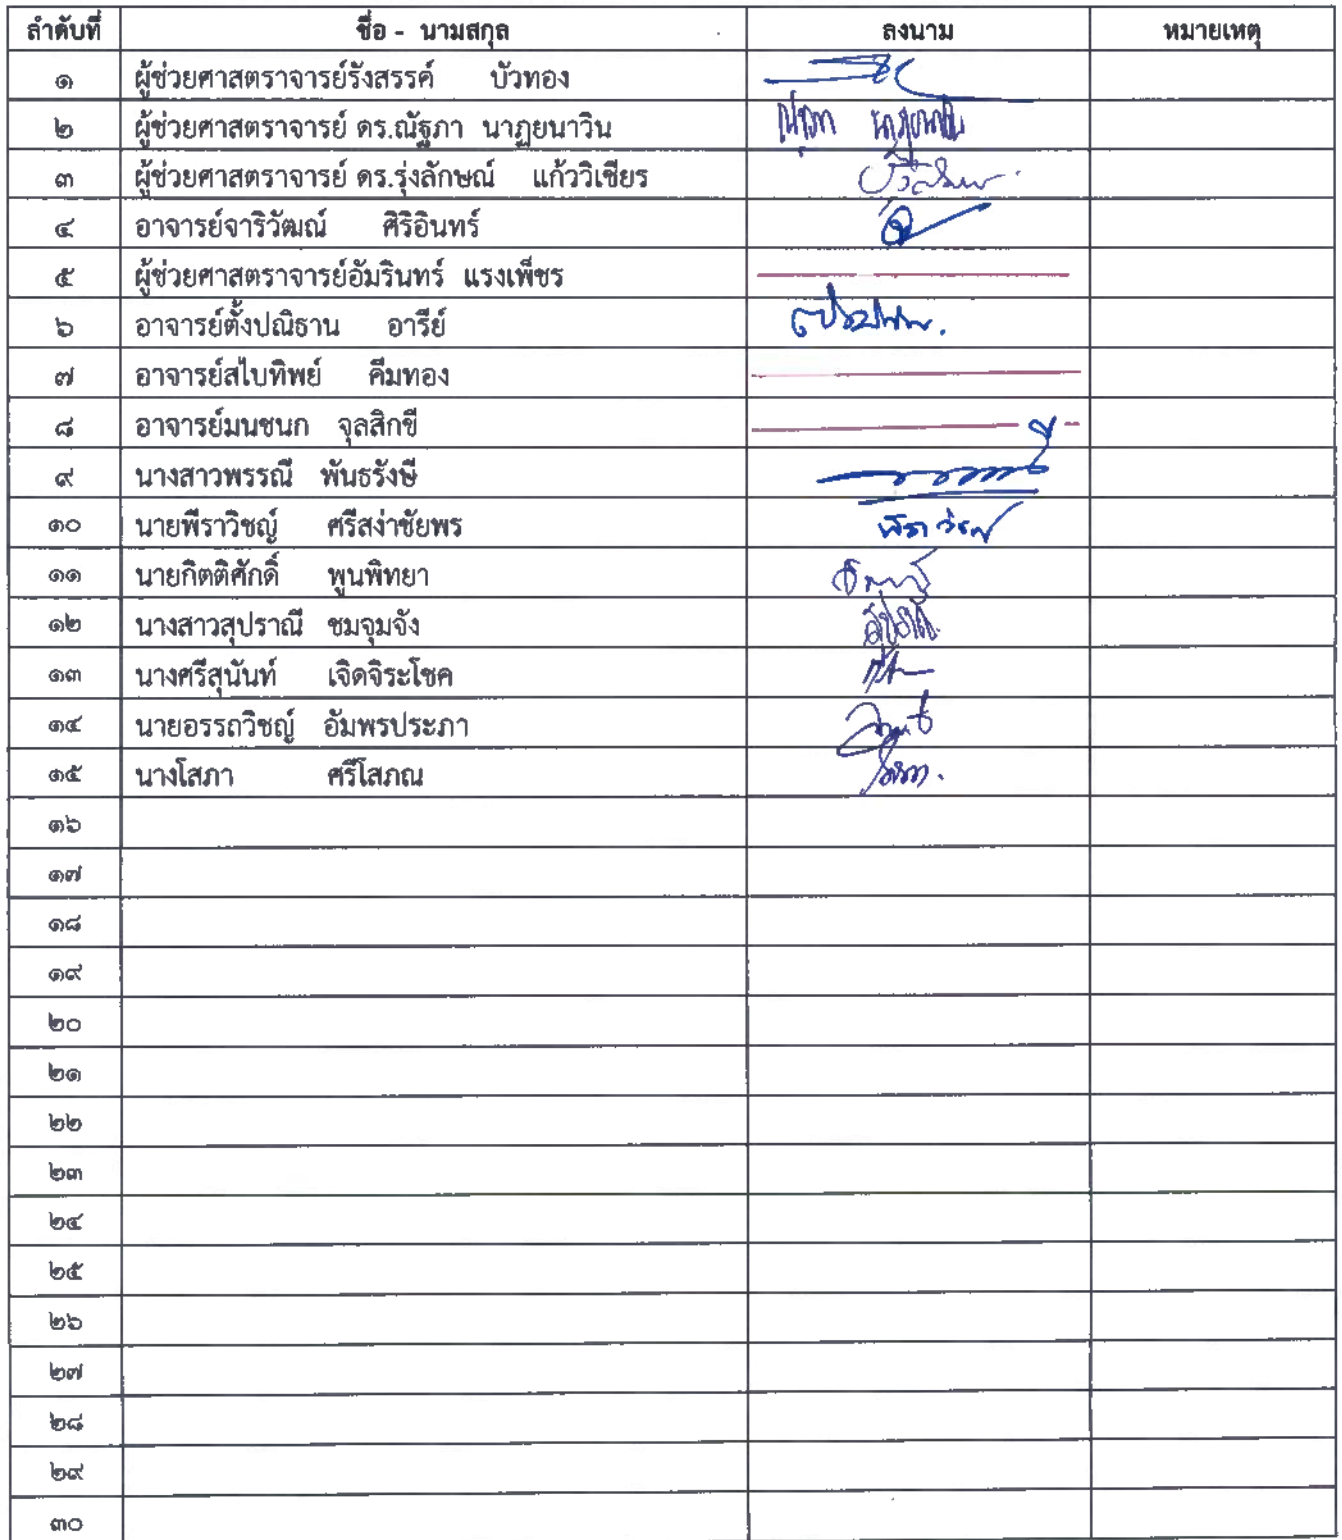 ลำดับที่ ชื่อ - นามสกุล ลงนาม หมายเหตุ
๑ ผู้ช่วยศาสตราจารย์รังสรรค์ บัวทอง
๒ ผู้ช่วยศาสตราจารย์ ดร.ณัฐภา นาฏยนาวิน ณัฐภา นาฏยนาวิน
๓ ผู้ช่วยศาสตราจารย์ ดร.รุ่งลักษณ์ แก้ววิเชียร
๔ อาจารย์จาริวัฒณ์ ศิริอินทร์
๕ ผู้ช่วยศาสตราจารย์อัมรินทร์ แรงเพ็ชร
๖ อาจารย์ตั้งปณิธาน อารีย์
๗ อาจารย์สไบทิพย์ คีมทอง
๘ อาจารย์มนชนก จุลสิกขี
๙ นางสาวพรรณี พันธรังษี
๑๐ นายพีราวิชญ์ ศรีสง่าชัยพร พีราวิชญ์
๑๑ นายกิตติศักดิ์ พูนพิทยา
๑๒ นางสาวสุปราณี ชมจุมจัง
๑๓ นางศรีสุนันท์ เจิดจิระโชค
๑๔ นายอรรถวิชญ์ อัมพรประภา
๑๕ นางโสภา ศรีโสภณ โสภา
๑๖
๑๗
๑๘
๑๙
๒๐
๒๑
๒๒
๒๓
๒๔
๒๕
๒๖
๒๗
๒๘
๒๙
๓๐